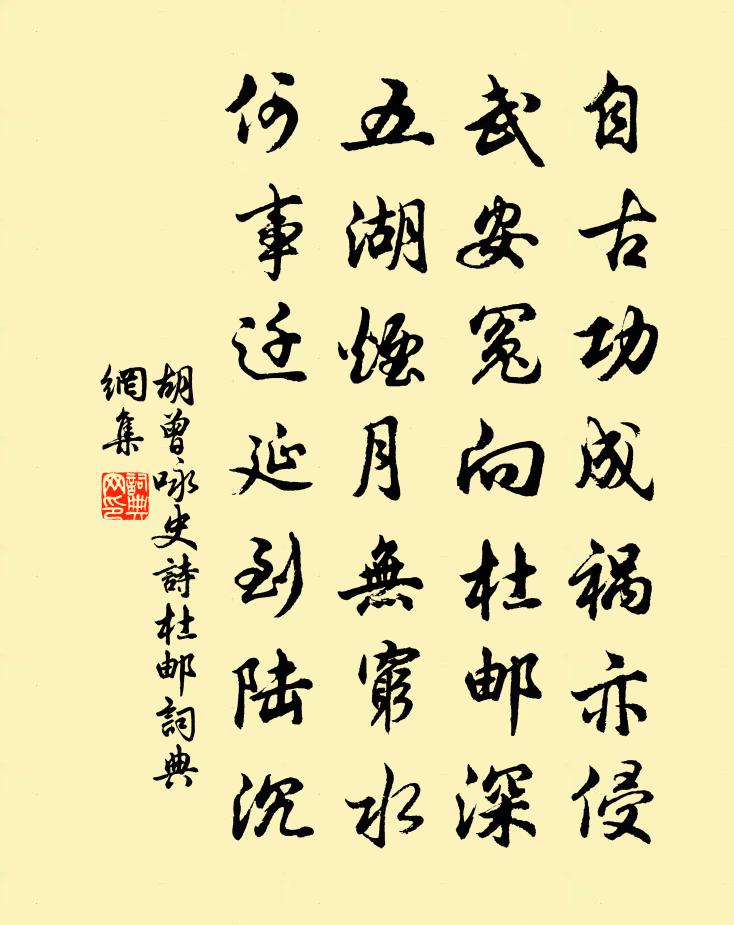 自古功成祸亦侵
武安冤向杜邮深
五湖煙月無窮水
何事迁延到陆沉
胡曾咏史詩杜邮詞典
網集
詞典
网印